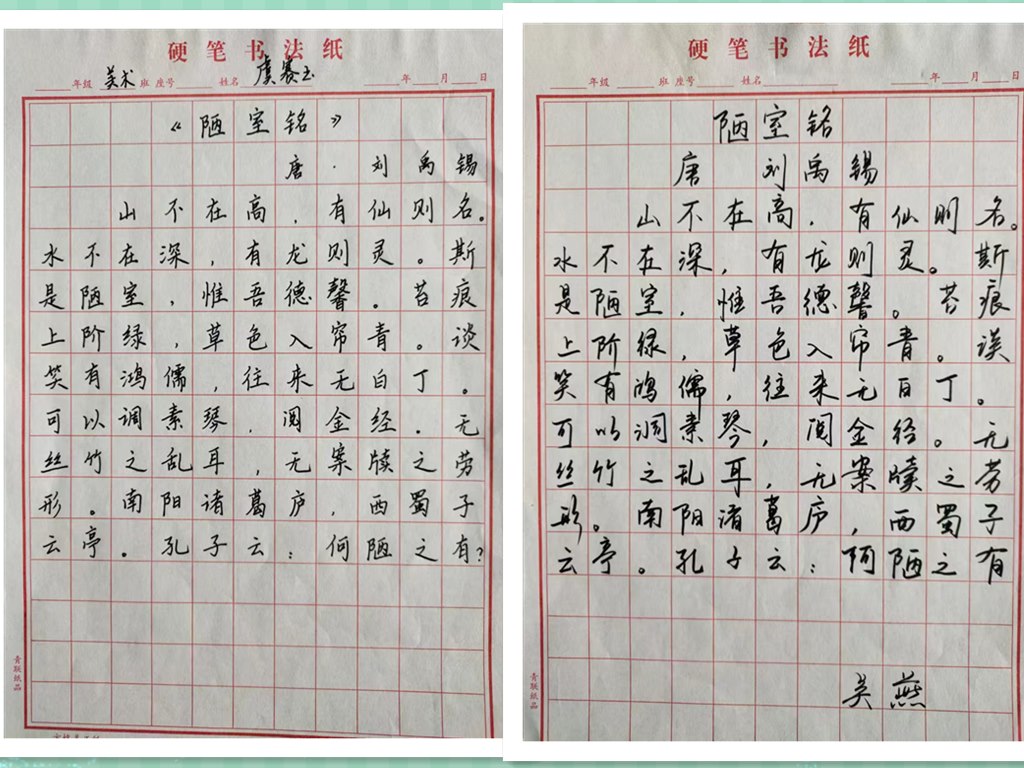 硬笔书法纸
年级 美术 班 座号 姓名 虞赛玉 年 月 日
《陋室铭》
唐·刘禹锡
山不在高,有仙则名。
水不在深,有龙则灵。斯
是陋室,惟吾德馨。苔痕
上阶绿,草色入帘青。谈
笑有鸿儒,往来无白丁。
可以调素琴,阅金经.无
丝竹之乱耳,无案牍之劳
形。南阳诸葛庐,西蜀子
云亭。孔子云:何陋之有?
青联纸品
硬笔书法纸
年级 班 座号 姓名 年 月 日
陋室铭
唐 刘禹锡
山不在高.有仙则名。
水不在深,有龙则灵。斯
是陋室.惟吾德馨。苔痕
上阶绿,草色入帘青。谈
笑有鸿儒,往来无白丁。
可以调素琴,阅金经。无
丝竹之乱耳.无案牍之劳
形。南阳诸葛庐,西蜀子
云亭。孔子云:何陋之有
吴燕
青联纸品